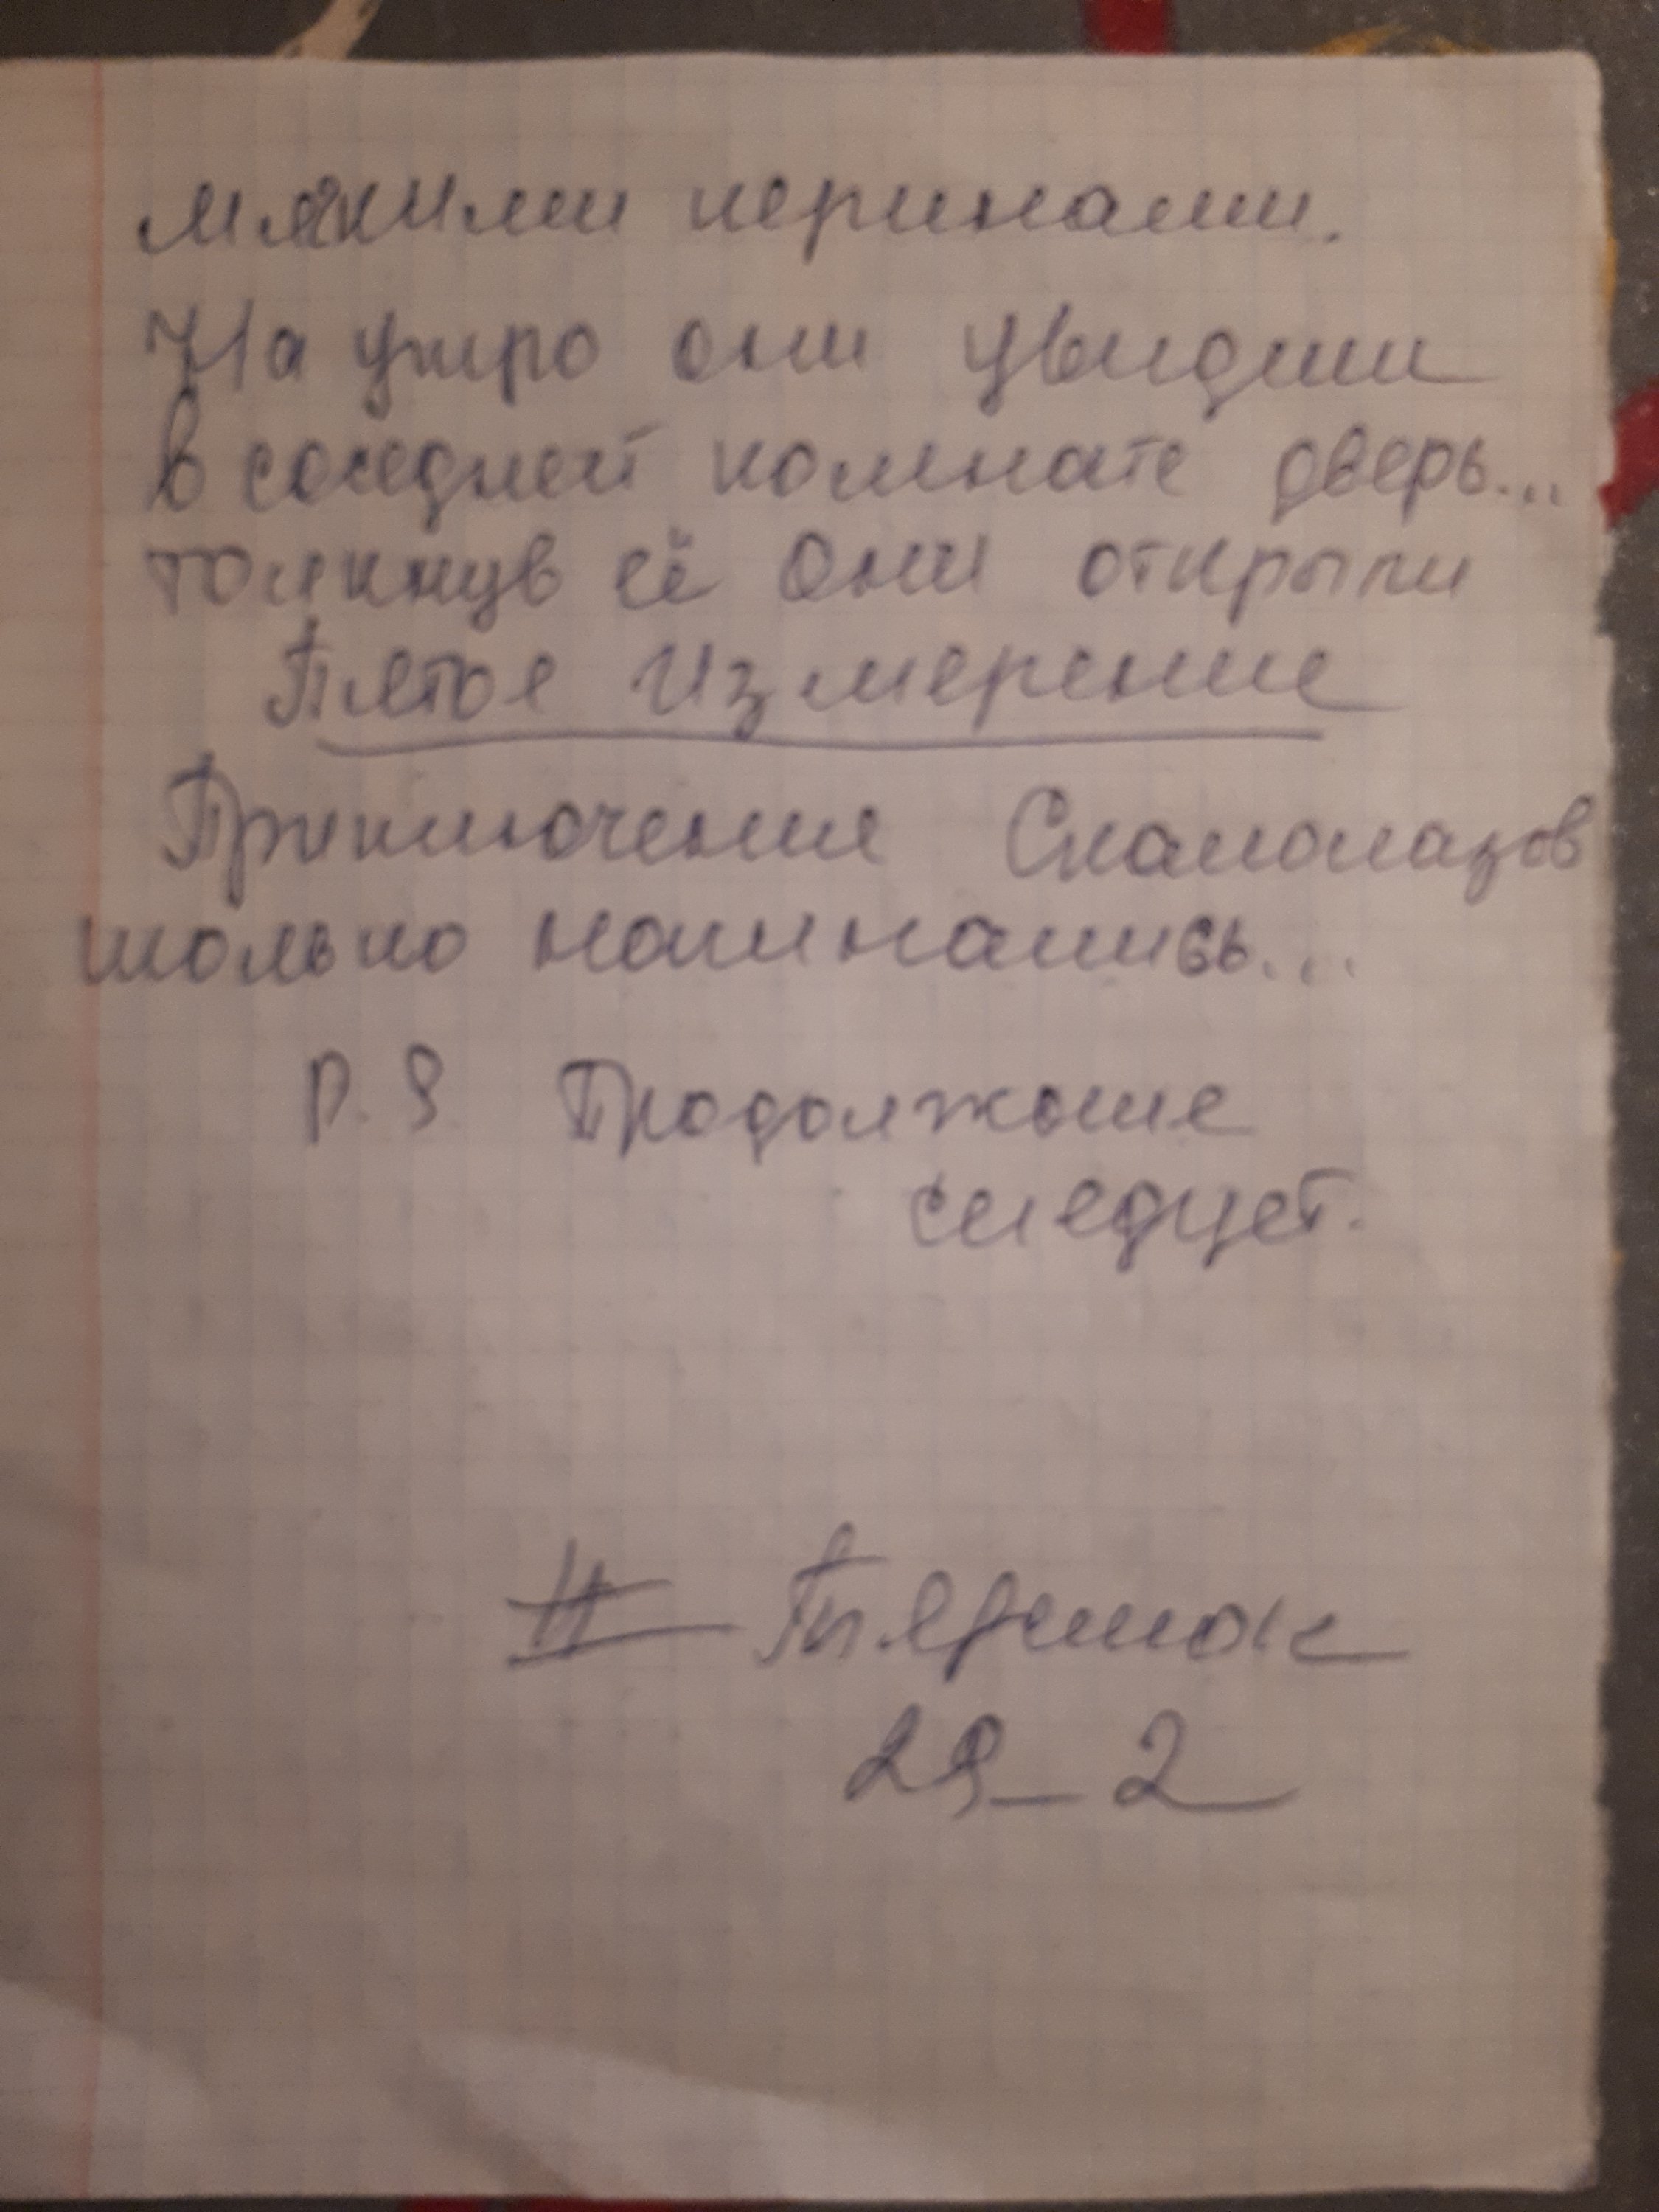 мягкими перинами.
На утро они увидели
в соседней комнате дверь...
толкнув её они открыли
Пятое Измерение
Приключения Скалолазов
только начинались...
P.S. Продолжение
следует.
#
29_2